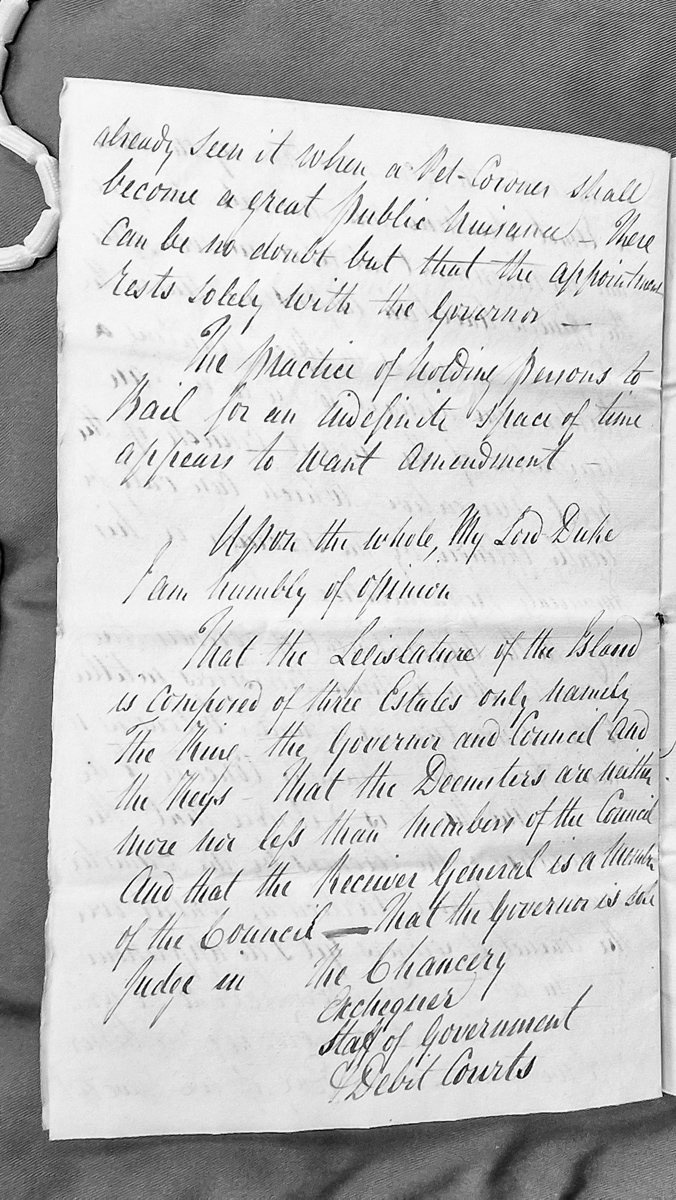 already seen it when a Pet-Coroner shall
become a great public Nuisance – There
can be no doubt but that the appointment
rests solely with the Governor —
The practice of holding persons to
Bail for an indefinite space of time
appears to want Amendment –
Upon the whole, My Lord Duke
I am humbly of opinion
That the Legislature of the Island
is composed of three Estates only namely
The King, the Governor and Council and
the Keys – That the Deemsters are neither
more nor less than members of the Council
And that the Receiver General is a Member
of the Council — That the Governor is sole
Judge in The Chancery
Exchequer
Staff of Government
& Debit Courts